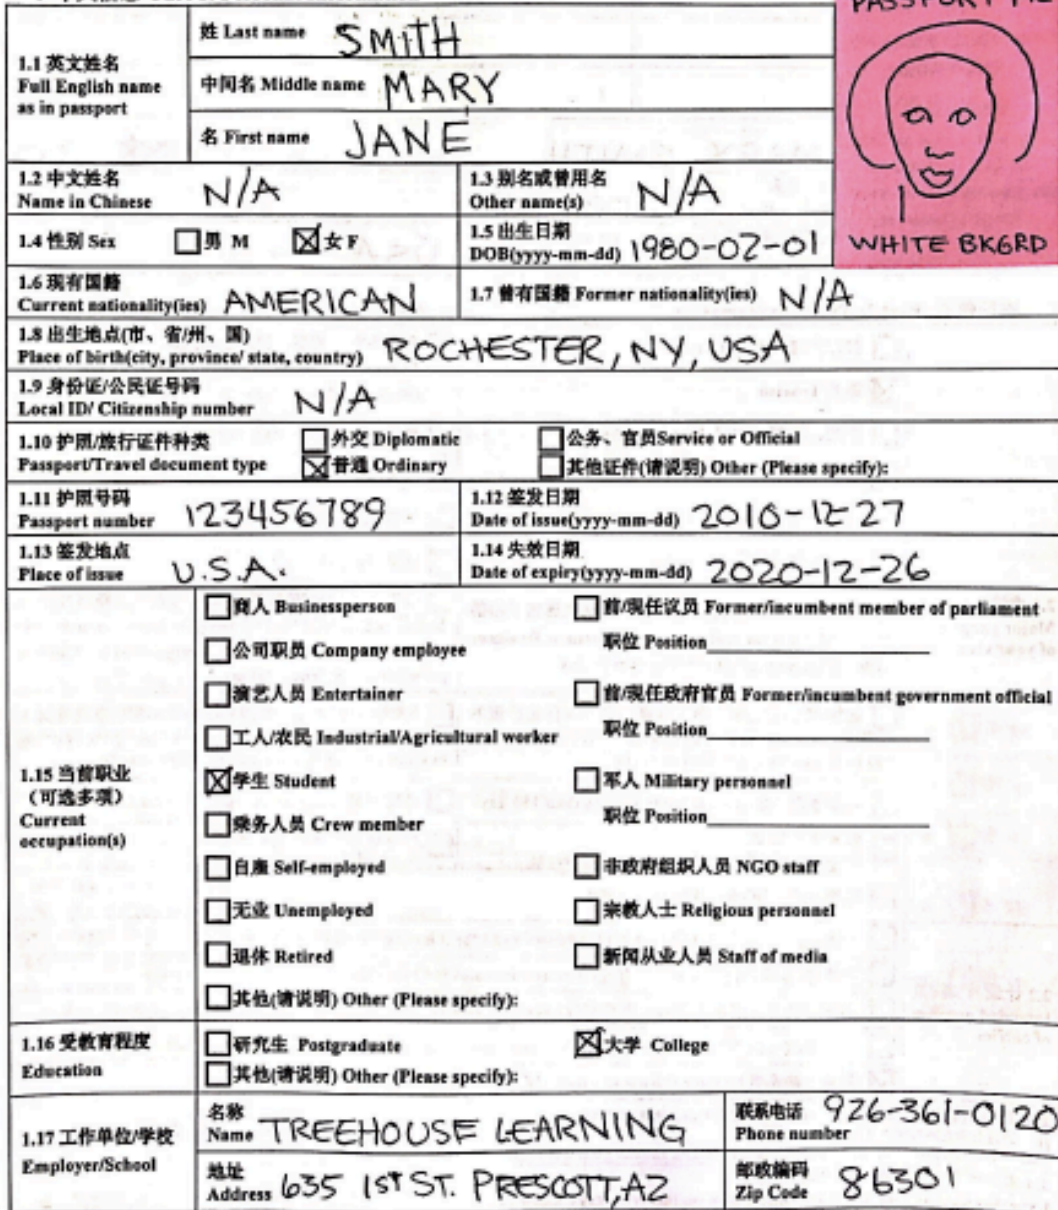 姓 Last name SMITH
1.1 英文姓名
Full English name
as in passport
中间名 Middle name MARY
名 First name JANE
WHITE BKGRD
1.2 中文姓名
Name in Chinese N/A
1.3 别名或曾用名
Other name(s) N/A
1.4 性别 Sex 男 M 女 F
1.5 出生日期
DOB(yyyy-mm-dd) 1980-02-01
1.6 现有国籍
Current nationality(ies) AMERICAN
1.7 曾有国籍 Former nationality(ies) N/A
1.8 出生地点(市、省/州、国)
Place of birth(city, province/ state, country) ROCHESTER, NY, USA
1.9 身份证/公民证号码
Local ID/ Citizenship number N/A
1.10 护照/旅行证件种类
Passport/Travel document type
外交 Diplomatic
公务、官员Service or Official
普通 Ordinary
其他证件(请说明) Other (Please specify):
1.11 护照号码
Passport number 123456789
1.12 签发日期
Date of issue(yyyy-mm-dd) 2010-12-27
1.13 签发地点
Place of issue U.S.A.
1.14 失效日期
Date of expiry(yyyy-mm-dd) 2020-12-26
1.15 当前职业
(可选多项)
Current
occupation(s)
商人 Businessperson
公司职员 Company employee
演艺人员 Entertainer
工人/农民 Industrial/Agricultural worker
学生 Student
乘务人员 Crew member
自雇 Self-employed
无业 Unemployed
退休 Retired
其他(请说明) Other (Please specify):
前/现任议员 Former/incumbent member of parliament
职位 Position
前/现任政府官员 Former/incumbent government official
职位 Position
军人 Military personnel
职位 Position
非政府组织人员 NGO staff
宗教人士 Religious personnel
新闻从业人员 Staff of media
1.16 受教育程度
Education
研究生 Postgraduate
大学 College
其他(请说明) Other (Please specify):
1.17 工作单位/学校
Employer/School
名称
Name TREEHOUSE LEARNING
联系电话 926-361-0120
Phone number
地址
Address 635 1ST ST. PRESCOTT, AZ
邮政编码
Zip Code 86301